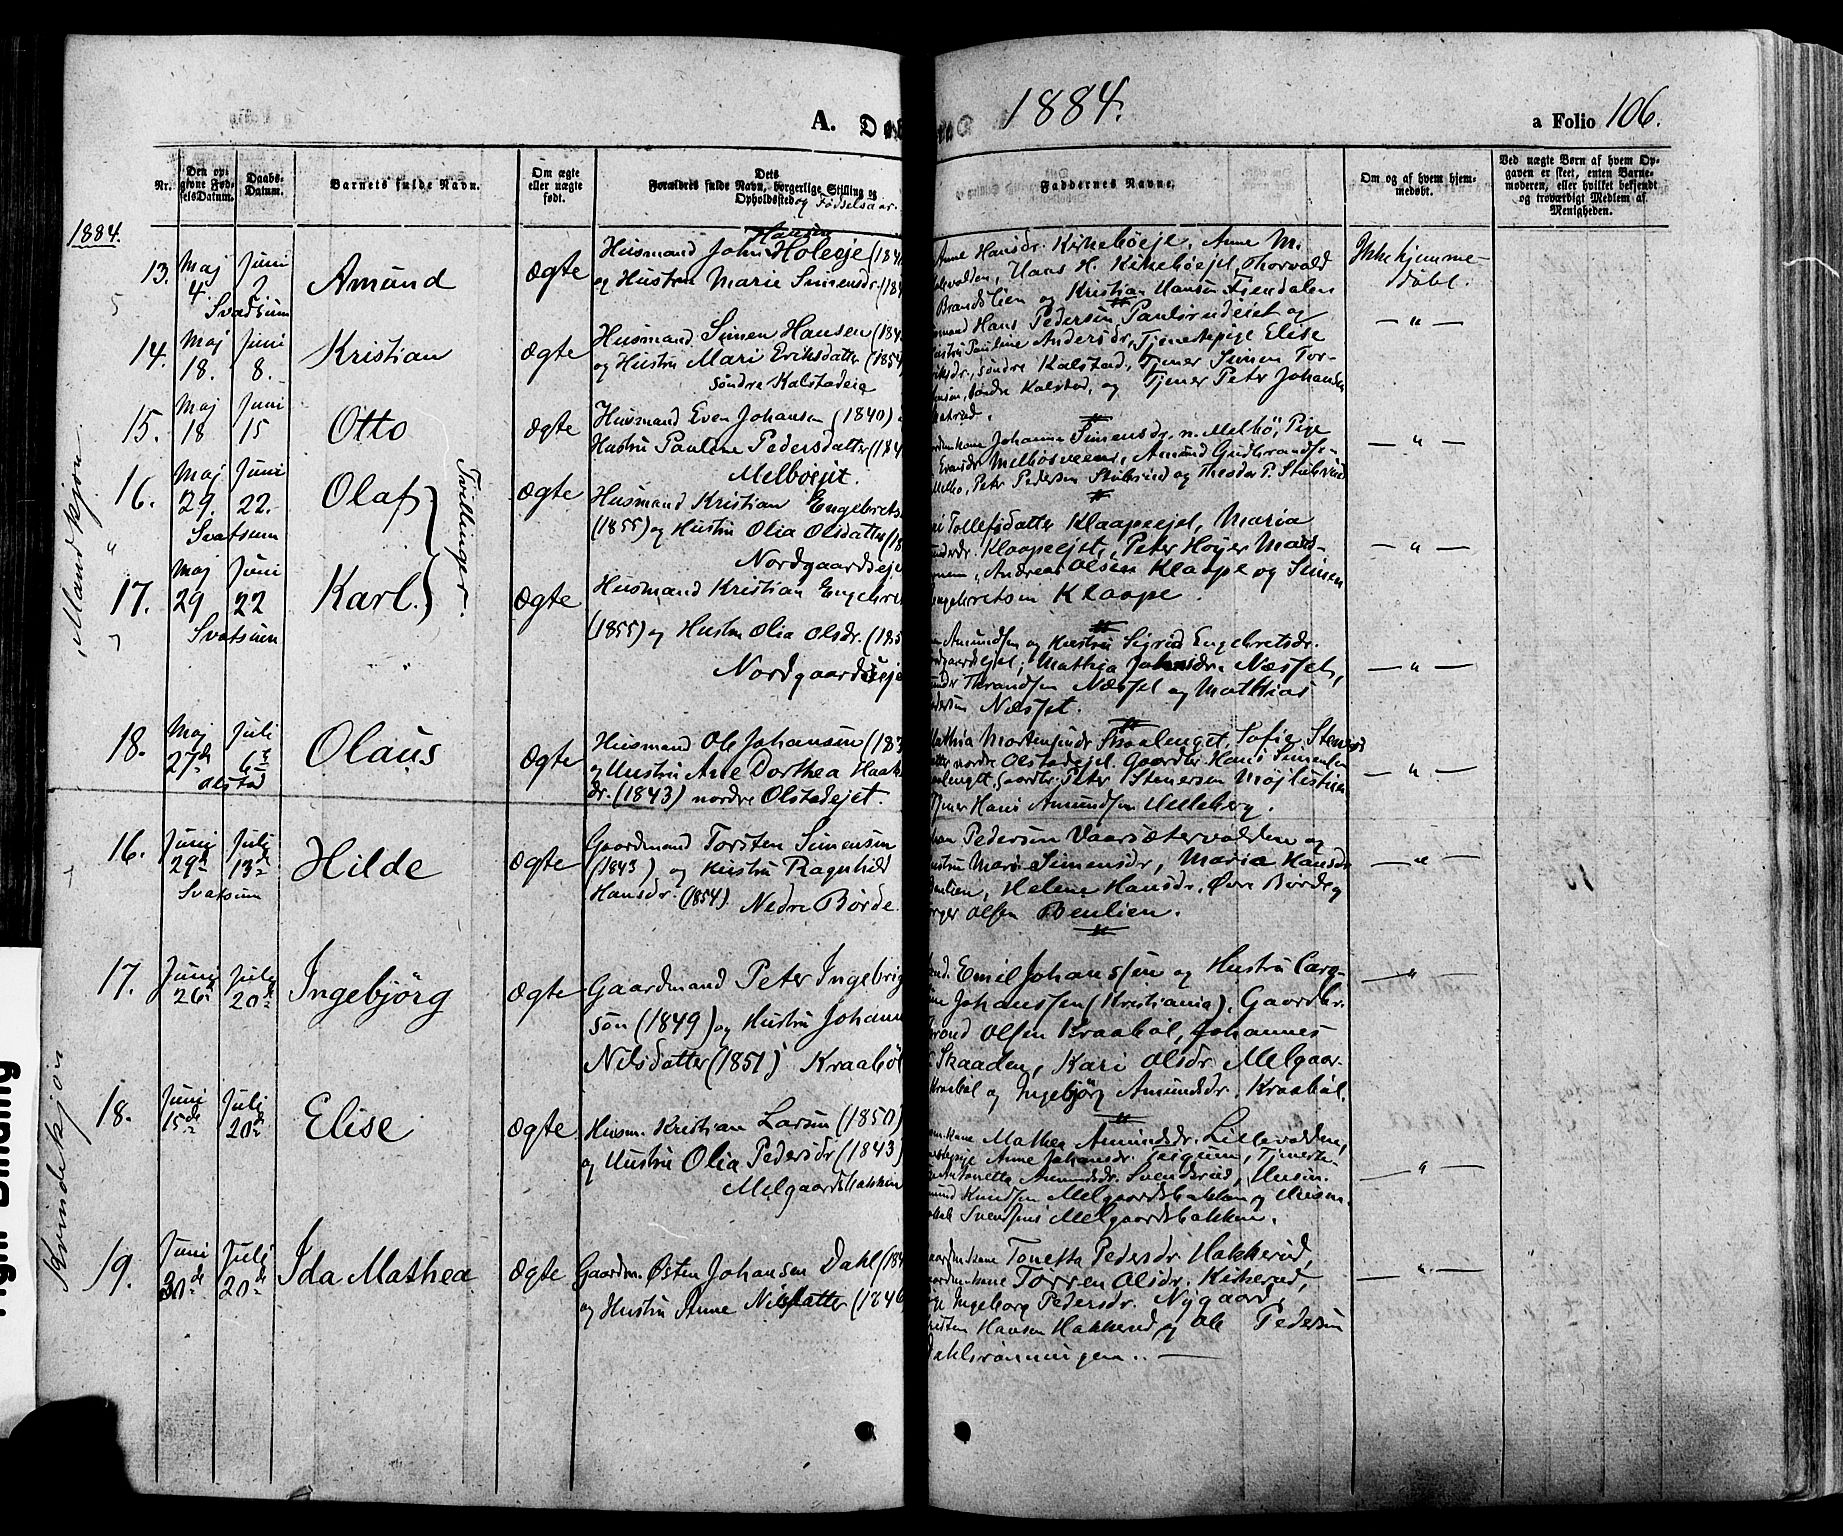 A. Dø
1884.
a Folio 106.
Nr.
Den opgivne FødselsDatum.
Daabs-Datum.
Barnets fulde Navn.
Om ægte eller uægte født.
Dets Forældres fulde Navn, borgerlige Stilling og Opholdssted og Fødselsaar.
Faddernes Navne.
Om og af hvem hjemmedøbt.
Ved uægte Børn af hvem Opgaven er skeet, enten Barnemoderen, eller hvilket bekjendt og troværdigt Medlem af Menigheden.
1884.
Mandkjøn
13. Maj 4. Juni 2 Amund Ægte
Svatsum
Hansen
Husmand John Holeeje (184
og Hustru Marie Simensdr. (18
Anne Hansdr. Kirkebøeje, Anne M.
Hans H. Kirkebøejet, Thorvald
Brandslien og Kristian Hansen
Ikke hjemmedøbt.
14. Maj 18. Juni 8. Kristian Ægte
Husmand Simen Hansen (184
og Hustru Mari Eriksdatter (1854
søndre Kalstadeie
Hans Pedersen Paulsrudeiet og
Pauline Andersdr, Tjenestepige Elise
søndre Kalstad, Tjener Simen Tor-
søndre Kalstad, og Tjener Peter Johansen
— " —
15. Maj 18 Juni 15 Otto Ægte
Husmand Even Johansen (1840)
Hustru Pauline Pedersdatter (184
Melbøejet.
Johanne Simensdr. n. Melbø, Pige
Melbøsveen, Amund Gudbrandsen
Melbø, Peter Pedersen Stubsrud og Theodor P. Stubsrud
— " —
16. Maj 29. Juni 22. Olaf Ægte
Svatsum
Tvillinger.
Husmand Kristian Engebrets
(1855) og Hustru Olia Olsdatter (18
Nordgaardseje
Tollefsdatter Klaapeejet, Maria
Klaapeejet, Peter Høyer Mats-
Andreas Olsen Klaape og Simen
Engebretsen Klaape.
— " —
17. Maj 29 Juni 22 Karl Ægte
Svatsum
Husmand Kristian Engebret
(1855) og Hustru Olia Olsdr. (185
Nordgaardseje
Amundsen og Hustru Sigrid Engebretsdr.
Mathia Johansdr. Næsset,
Thrandsen Næsset og Mathias
Pedersen Næsset.
— " —
18. Maj 27de Juli 6te Olaus Ægte
Olstad
Husmand Ole Johansen (18
og Hustru Ane Dorthea Haak
dr. (1843) nordre Olstadejet.
Mathia Mortensdr. Sofie
nordre Olstadejet. Gaardbr. Hans Simensen
Gaardbr. Peter Stenersen
Tjener Hans Amundsen Helleberg.
— " —
Kvindekjøn
16. Juni 29de Juli 13de Hilde Ægte
Svatsum
Gaardmand Torsten Simensen
(1843) og Hustru Ragnhild
Hansdr. (1854) Nedre Børde.
Pedersen Vaarsætervolden og
Hustru Mari Simensdr, Maria Hansdr
Helene Hansdr, Øvre Børde og
Olsen Benlien.
— " —
17. Juni 26de Juli 20de Ingebjörg Ægte
Gaardmand Peter Ingebrig
sön (1849) og Hustru Johann
Nilsdatter (1851) Kraabøl
Emil Johanssen og Hustru Caro-
line Johanssen (Kristiania), Gaardbr.
Trond Olsen Kraabøl, Johannes
Skaaden, Kari Olsdr. Melgaar-
Kraabøl og Ingebjörg Amundsdr. Kraabøl.
— " —
18. Juni 15de Juli 20de Elise Ægte
Husm. Kristian Larsen (1850)
og Hustru Olia Pedersdr (1843)
Melgaardsbakken
Mathea Amundsdr. Lillevolden,
Anne Johansdr. Teigum, Tjeneste-
Antonette Amundsdr. Svendsrud, Husm.
Amund Knudsen Melgaardsbakken og Husm.
Svendsens Melgaardsbakken.
— " —
19. Juni 30de Juli 20de Ida Mathea Ægte
Gaardm. Østen Johansen Dahl (184
og Hustru Anne Nilsdatter (1846
Tonetta Pedersdr Hakkerud,
Torren Olsdr. Kirkerud,
Ingeborg Pedersdr. Nygaard,
Hansen Hakkerud og Ole Pedersen
Dahlsrønningen.
— " —